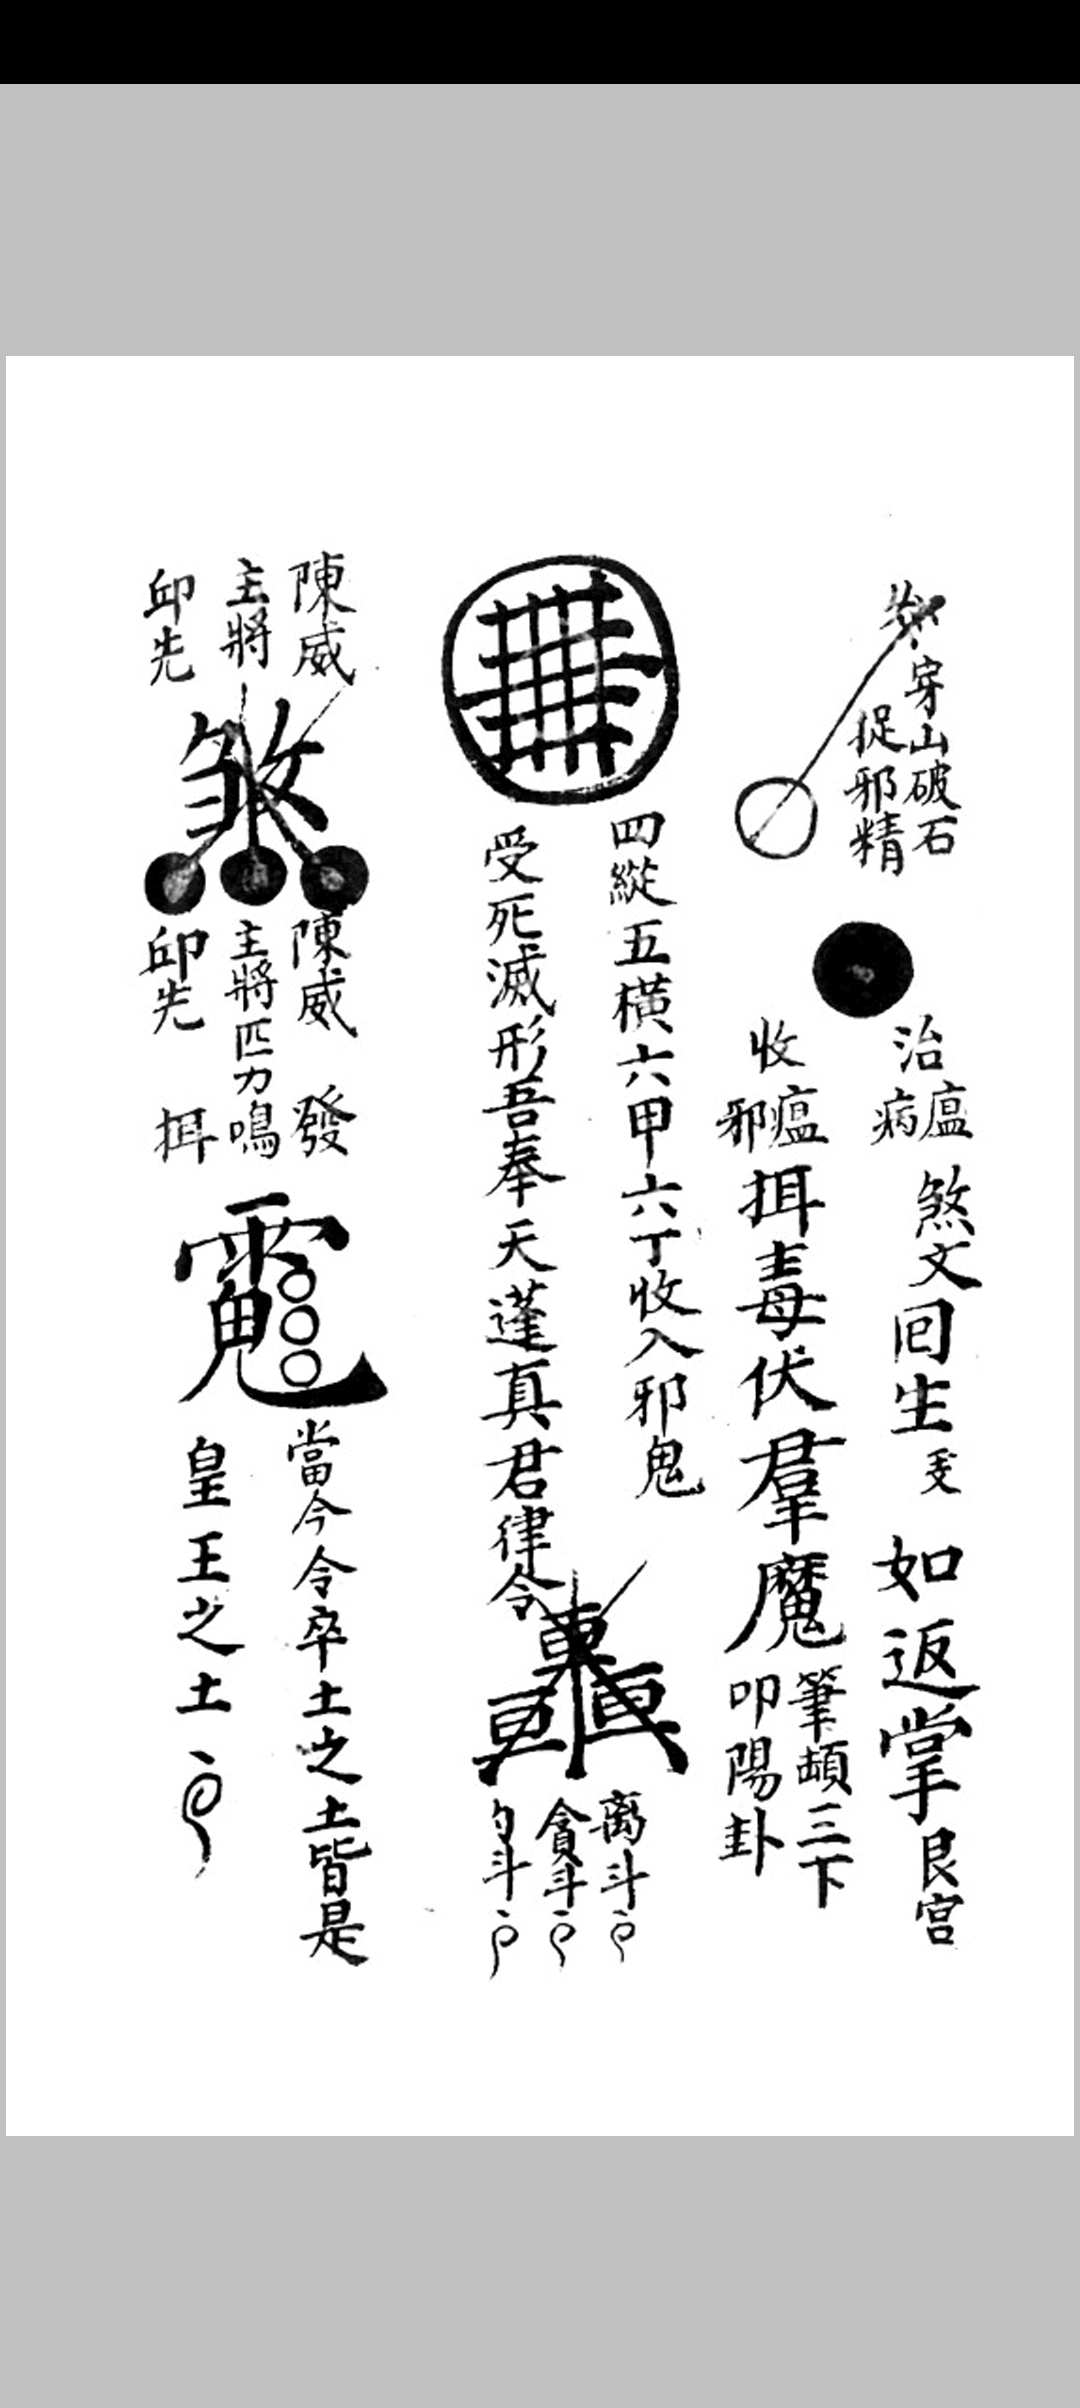 穿山破石
捉邪精
治
瘟
病
煞文囘生
如返掌
艮宮
收
瘟
邪
挕毒伏羣魔
筆頔三下
叩陽卦
四縱五橫六甲六丁收入邪鬼
受死滅形吾奉天蓬真君律令
离斗
貪斗
勺斗
陳威
主將
邱先
煞
陳威 發
主將匹力鳴
邱先 挕
當今令卒土之土皆是
皇王之土